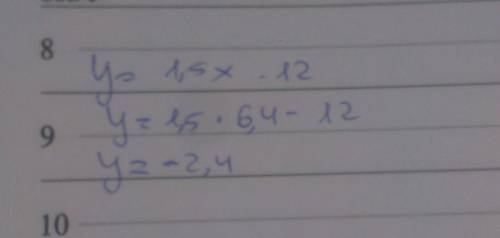 8
y= 1,5x - 12
y= 1,5 · 6,4 - 12
9
y= -2,4
10